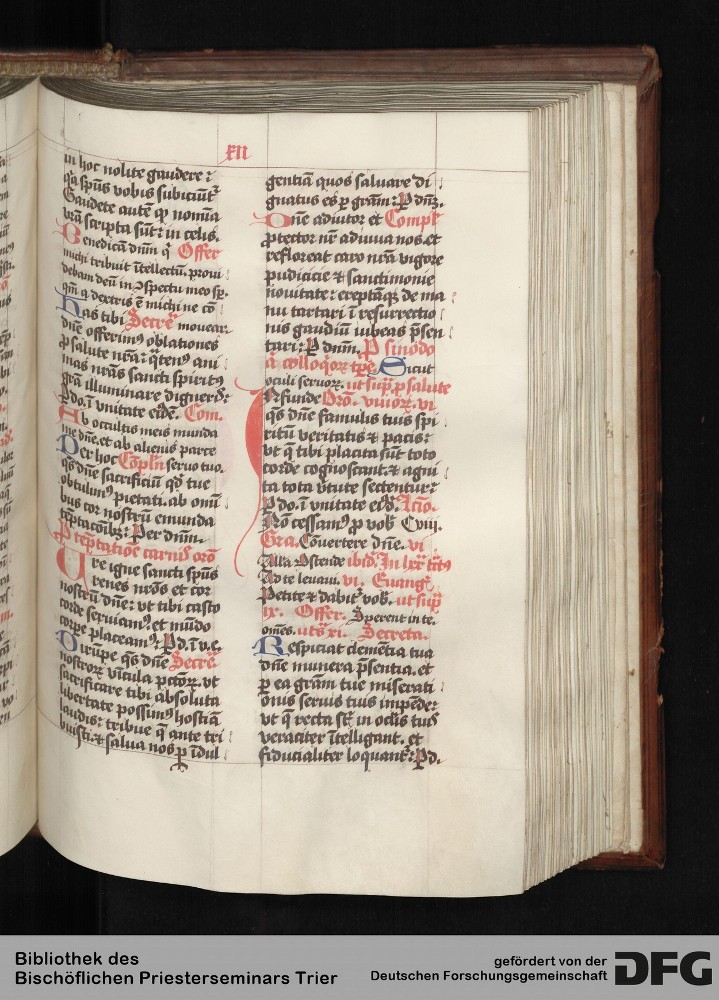 xii
in hoc nolite gaudere:
q̃a sp̃us vobis subiciũtʳ
Gaudete autẽ qꝫ nomĩa
vr̃a scripta sũt: in celis.
Benedicã dñm q̃ Offer
michi tribuit ĩtellectũ. proui
debam deũ in ɔspectu meo sꝑ.
qm̃ a dextris ẽ michi ne cõ
has tibi Secreᵗ mouear.
dñe offerimꝰ oblationes
ꝓ salute nr̃a: q̃tenꝰ ani
mas nr̃as sancti spiritꝰ
gr̃a illuminare digneris:
ꝑ do. ĩ vnitate eiꝰdẽ. Com.
Ab occultis meis munda
me dñe. et ab alienis parce
Per hoc Cõplñ seruo tuo.
qs̃ dñe sacrificiũ qd̃ tue
obtulimꝰ pietati. ab omĩ
bus cor nostrũ emunda
tẽptacõibꝫ: Per dñm.
P tẽptatiõe carnis orõ
Ure igne sancti sp̃us
renes nr̃os et cor
nostrũ dñe: vt tibi casto
corde seruiamꝰ. et mũdo
corpe placeamꝰ: P d. ĩ v. e.
Dirupe qs̃ dñe Secreᵗ
nostroꝝ vĩcula pctõꝝ. vt
sacrificare tibi absoluta
libertate possimꝰ hostiã
laudis: tribue q̃ ante tri
buisti. ⁊ salua nos ꝑ ĩdul
gentiã quos saluare di
gnatus es ꝑ gr̃am: P dñꝫ.
Dñe adiutor et Comple
ꝓtector nr̃ adiuua nos. et
refloreat caro nr̃a vigore
pudicicie ⁊ sanctimonie
nouitate: ereptãqꝫ de ma
nu tartari ĩ resurrectio
nis gaudiũ iubeas p̃sen
tari: P dñm. P sinodo
a colloq̃oꝝ tp̃e. Sicut
oculi seruoꝝ. ut supᵃ ꝓ salute
Infunde Orõ. viuoꝝ. vi
qs̃ dñe famulis tuis spi
ritũ veritatis ⁊ pacis:
vt q̃ tibi placita sũt toto
corde cognoscant. ⁊ agni
ta tota v̾tute sectentur:
P do. ĩ vnitate eiꝰd. Lc̃io.
Nõ cessamꝰ ꝓ vob̾ C viij.
Gra. Cõuertere dñe. vi
Alla Ostende ibid. In lxxᵃ tctꝰ
Ad te leuaui. vi. Euangᵉ
Petite ⁊ dabitʳ vob̾. ut supᵃ
ix. Offer. Sperent in te.
om̃es. ut s̾ xi. Secreta.
Respiciat clemẽtia tua
dñe munera p̃sentia. et
ꝑ ea gr̃am tue miserati
onis seruis tuis impẽde:
vt q̃ recta sũt in oclis tuis
veraciter ĩtelligant. et
fiducialiter loquantʳ: P d.
Bibliothek des
Bischöflichen Priesterseminars Trier
gefördert von der
Deutschen Forschungsgemeinschaft
DFG